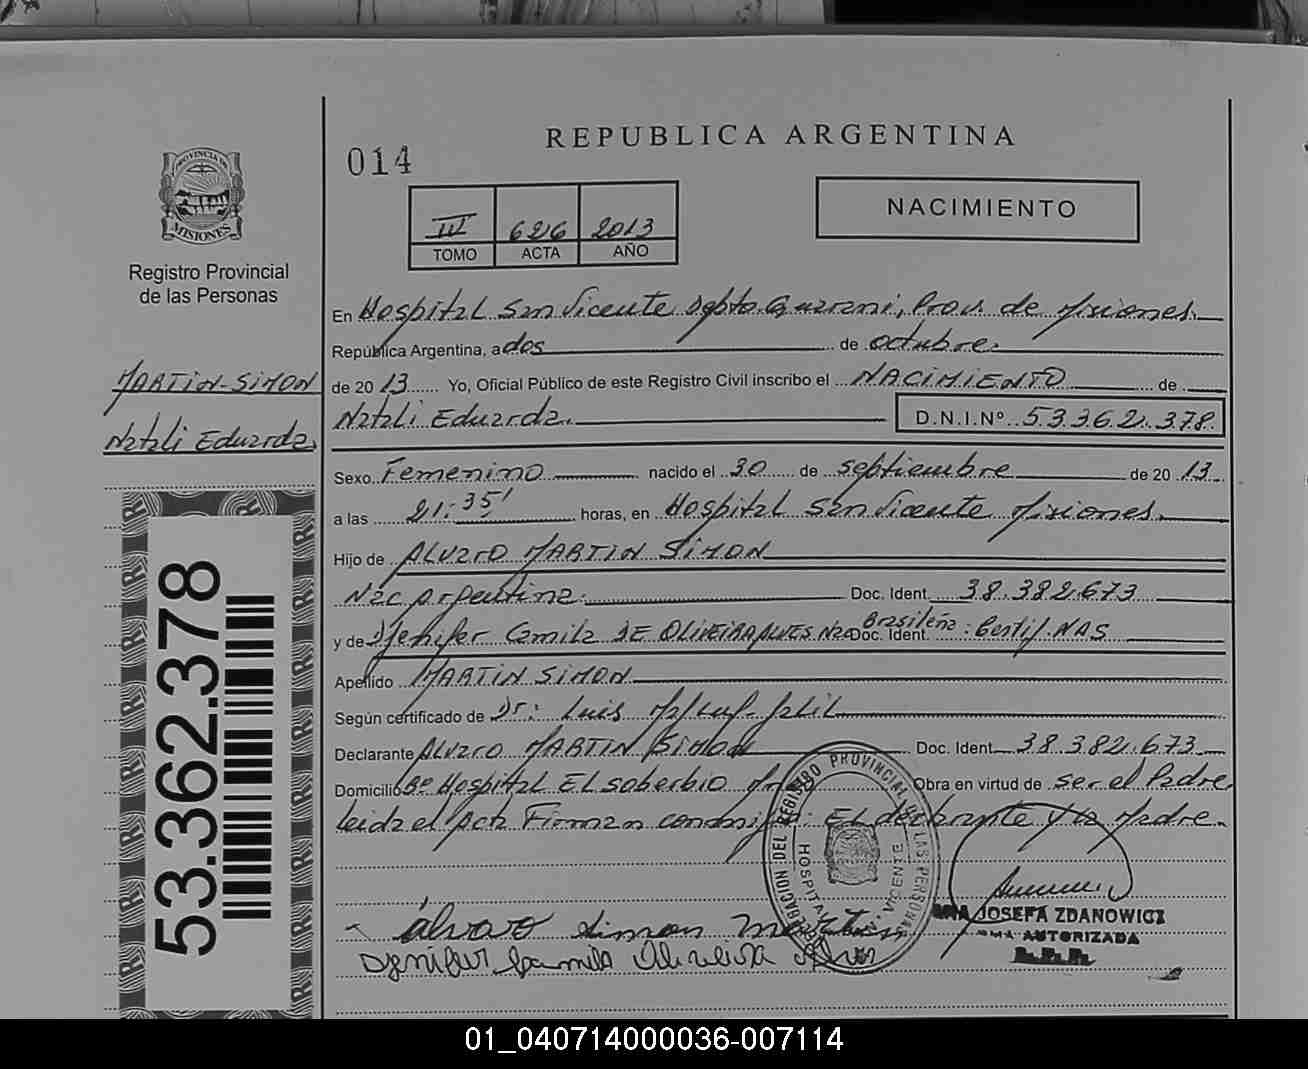 REPUBLICA ARGENTINA
014
NACIMIENTO
III 626 2013
TOMO ACTA AÑO
PROVINCIA DE MISIONES
Registro Provincial
de las Personas
En Hospital San Vicente Depto. Guarani, Prov. de Misiones.
República Argentina, a dos de octubre
de 2013 Yo, Oficial Público de este Registro Civil inscribo el NACIMIENTO de
MARTIN SIMON
Natali Eduarda
Natali Eduarda. D.N.I.Nº 53.362.378
Sexo Femenino nacido el 30 de septiembre de 2013
a las 21:35' horas, en Hospital San Vicente Misiones.
Hijo de ALVARO MARTIN SIMON
Nac Argentina. Doc. Ident. 38.382.673
y de Djenifer Camila DE OLIVEIRA ALVES Nac Brasileña Doc. Ident. Certif. NAS
Apellido MARTIN SIMON
Según certificado de Dr: Luis
Declarante ALVARO MARTIN SIMON Doc. Ident. 38.382.673
Domicilio Bº Hospital El soberbio Obra en virtud de ser el Padre
leida el Acta Firman conmigo: El declarante y la Madre.
53.362.378
DELEGACION DEL REGISTRO PROVINCIAL DE LAS PERSONAS
HOSPITAL VICENTE
Álvaro Simon Martin
Djenifer Camila Oliveira
JOSEFA ZDANOWICZ
FIRMA AUTORIZADA
01_040714000036-007114